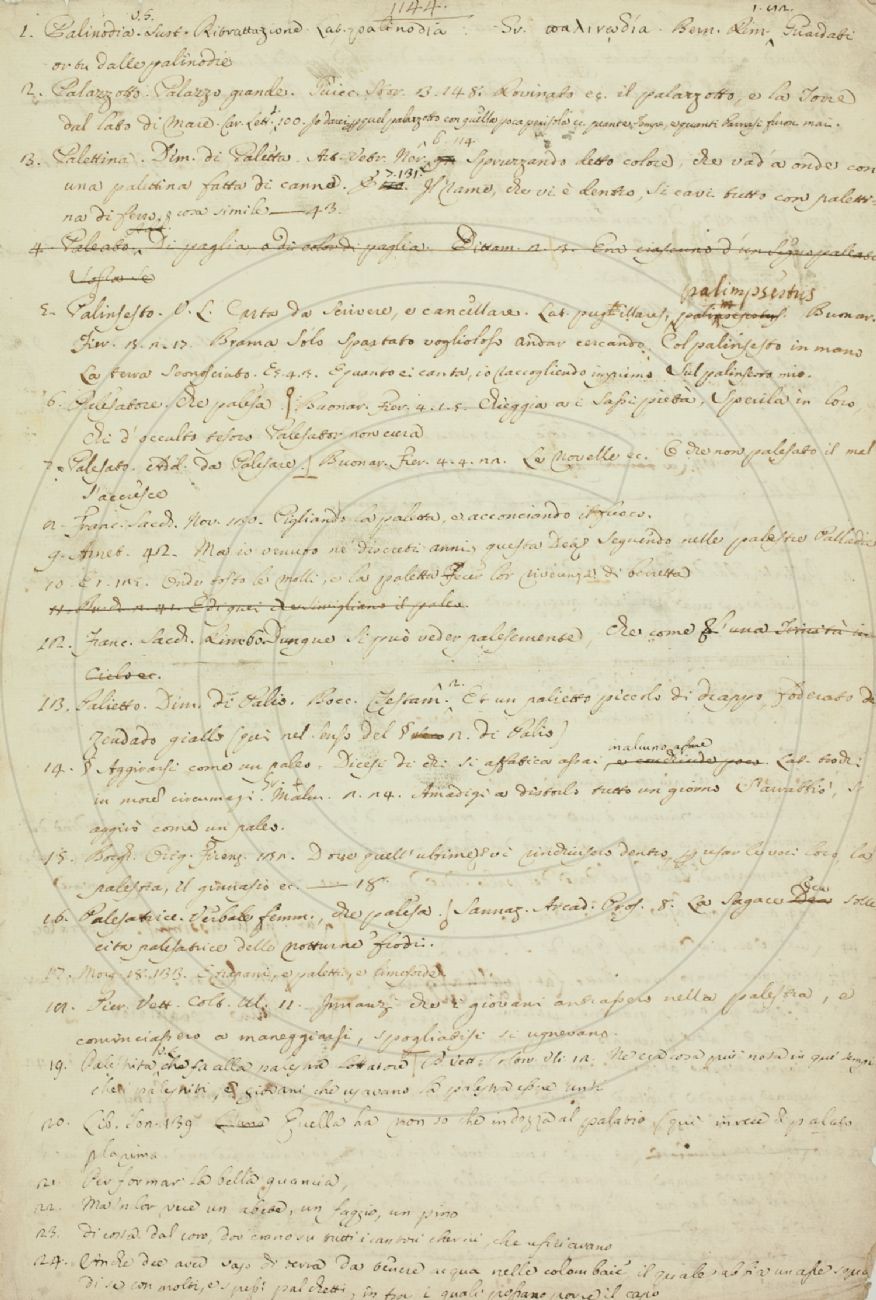 1144.
1. Palinodia. V.S. Sust. Ritrattazione. Lat. palinodia. Gr. παλινῳδία. Bern. Rim. 1. Guardati
or tu dalle palinodie
2. Palazzotto. Palazzo grande. Guicc. Stor. 13. 148. Rovinato ec. il palazzotto, e la Torre
dal lato di Mare. Car. Lett. 1. 100. Io darei quel palazzotto con quella poca penisola ec.
3. Palettina. Dim. di Paletta. Art. Vetr. Ner. 6. 114. Spruzzando detto colore, che vad'a onde con
una palettina fatta di canne. 7. 131. Il rame, che vi è dentro, si cavi tutto con paletti-
na di ferro, o cosa simile — 43.
4. Paleato. Di paglia, o di color di paglia. Dittam. Era ciascuno d'un
5. Palinsesto. V. L. Carta da scrivere, e cancellare. Lat. pugillares, palimpsestus. Buonar.
Fier. Brama solo spastato voglioloso andar cercando Col palinsesto in mano
La terra sconosciuto. E quanto ei canta, io raccogliendo imprimo Sul palinsesto mio.
6. Palesatore. Che palesa. Buonar. Fier. 4. 1. 5. Chieggia a i sassi pietà, speri la in loro,
Chi d'occulto tesoro Palesator non cura
7. Palesato. Add. da Palesare. Buonar. Fier. 4. 4. Le novelle ec. E che non palesato il mal
s'accresce
8. Franc. Sacch. Nov. Pigliando la paletta, e acconciando il fuoco.
9. Amet. 42. Ma io venuto ne' dieceti anni, questa Dea seguendo nelle palestre Palladie
10. E Onde tosto le molli, e la paletta Fecer lor riverenza di berretta
11. E di quei che simigliano il paleo.
12. Franc. Sacch. Dunque si può veder palesemente, che come una Trinità in
Cielo ec.
13. Palietto. Dim. di Palio. Bocc. Testam. 2. Et un palietto piccolo di drappo, foderato di
zendado giallo (qui nel senso del n. di Palio)
14. Aggirarsi come un paleo. Dicesi di chi si affatica assai, e conchiude poco. Lat. trochi
in morem circumagi. Malm. Amadigi a distorlo tutto un giorno S'arrabbiò, si
aggirò come un paleo.
15. Borgh. Orig. Firenz. Dove quell'ultime vi rinchiusero dentro, per usar le voci loro, la
palestra, il ginnasio ec. — 18
16. Palesatrice. Verbale femm., che palesa. Sannaz. Arcad. Pros. 8. La sagace solle-
cita palesatrice delle notturne frodi.
17. Morg. 18. 133. E trapani, e paletti, e lime sorde.
18. Pier. Vett. Colt. Ul. 11. Innanzi che i giovani entrassero nella palestra, e
cominciassero a maneggiarsi, spogliatisi si ugnevano.
19. Palestrita. che fa alla palestra Lottatore. P. Vett. Colt. Uli. Ne era cosa più nota in quei tempi
che i palestriti, e giovani che usavano la palestra esser unti
20. Lib. Son. 139 Quella ha non so che indozza al palatio (qui in vece di palato
per rima
21. Per formar la bella guancia,
22. Ma'n lor vece un abete, un faggio, un pino
23. di corsa dal coro, dov'erano su tutti i cantori cherici, che ufiziavano
24. Anche dee aver vaso di terra da bevere acqua nelle colombaie il quale abbia un asse sopra
di se con molti, e spessi palchetti, in fra i quali possano porre il capo